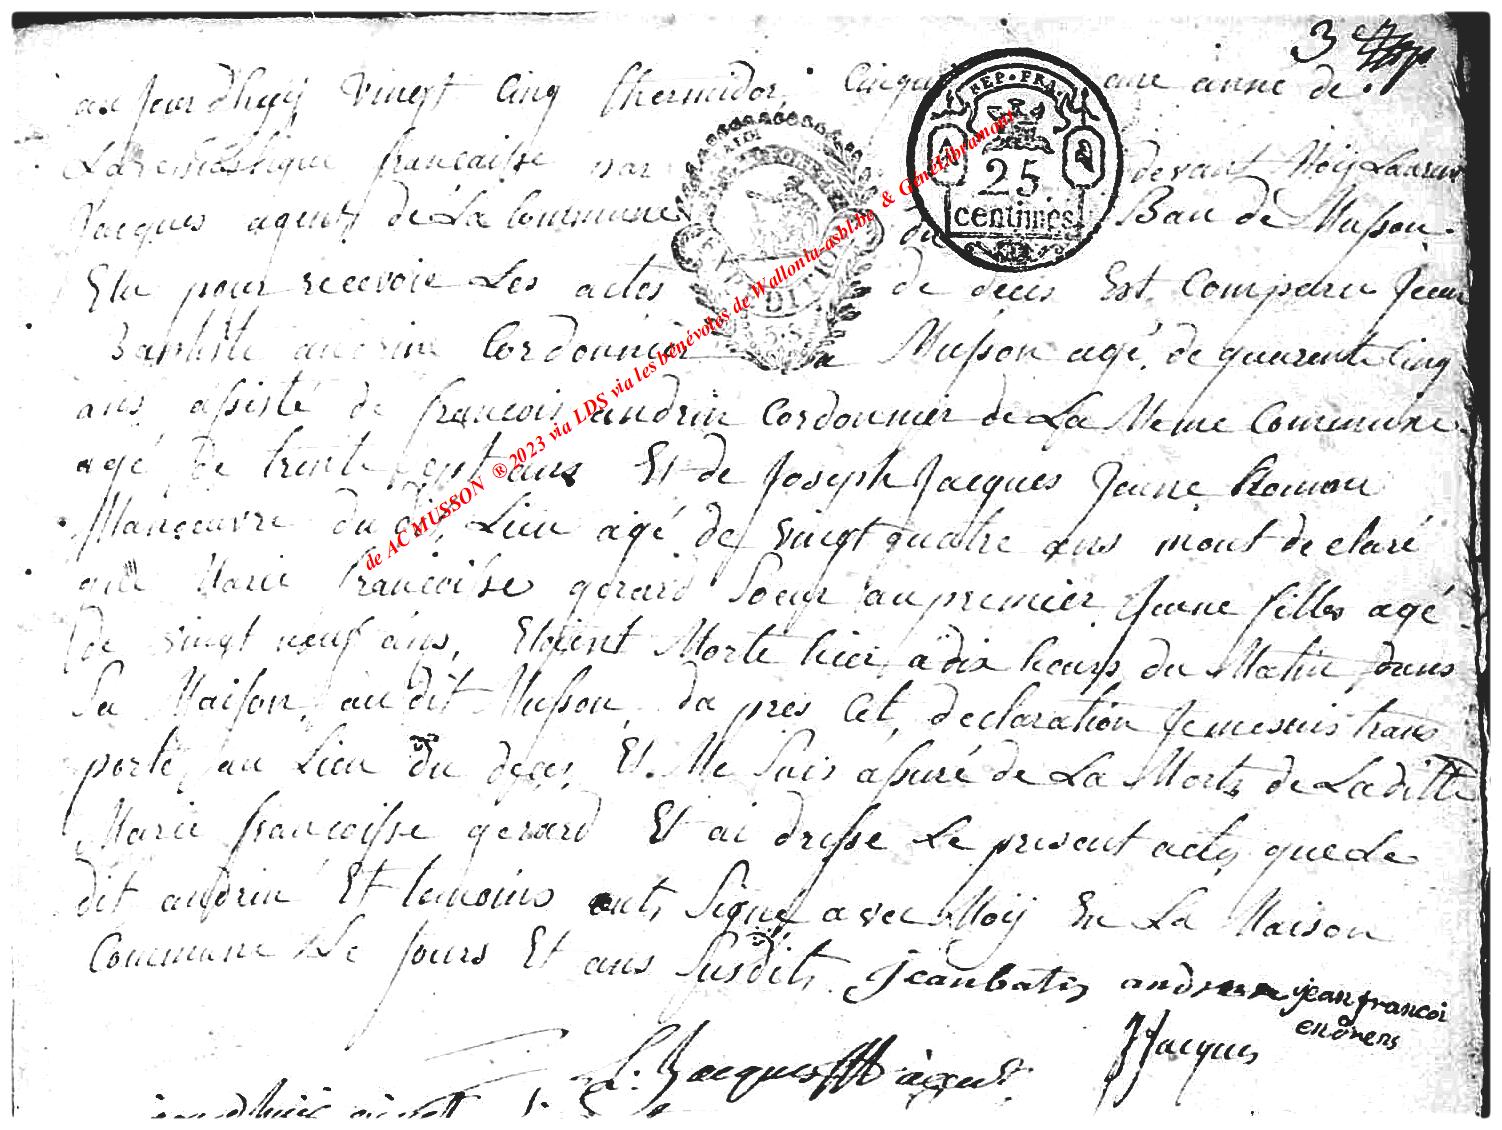 3
au jour dhuij vingt cinq thermidor Cinqui eme anne de
La republique francaisse par devant Moij Laurent
Jacques agent de La Commune du Ban de Musson
Elu pour recevoir Les actes de deces Est Comparu Jean
Baptiste andrine Cordonnier a Musson agé de quarente Cinq
ans assisté de francois andrin Cordonnier de La Meme Commune
agé de trente sept ans Et de Joseph Jacques Jeune homme
Manœuvre du dit Lieu agé de vingt quatre ans mont declaré
que Marie francoisse gerard Soeur au premier Jeune filles agé
de vingt neuf ans, Etoient Morte hier a dix heurs du Matin dans
Sa Maison au dit Musson da pres Cet declaration Je me suis trans
porté au Lieu du deces Et Me Suis assuré de La Morts de Laditte
Marie francoisse gerard Et ai dresse Le present acte que Le
dit andrin Et temoins onts Signé avec Moij En La Maison
Commune Le Jours Et ans Susdits jeanbatis andrenne jean francoi
endrens
L: Jacques agent JJacques
REP. FRA
25
centimes
de AC MUSSON ® 2023 via LDS via les bénévoles de Wallonia-asbl.be & GénéaLibramont